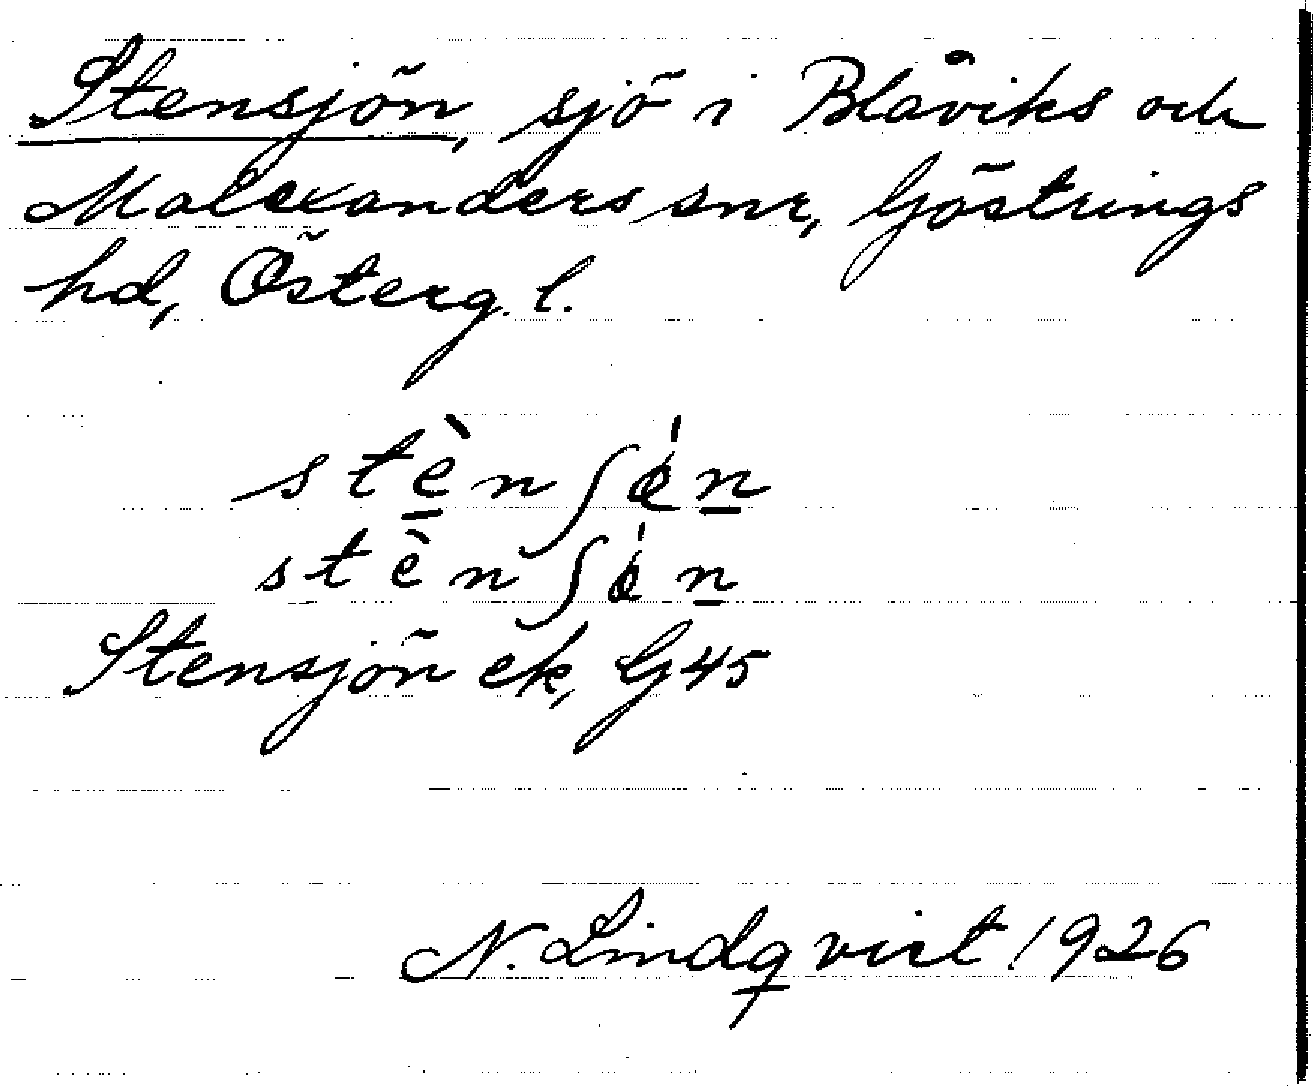 Stensjön, sjö i Blåviks och
Malexanders snr, Göstrings
hd, Österg. l.
stè̲nʃǿn̲
stènʃǿn̲
Stensjön ek, G45
N. Lindqvist 1926